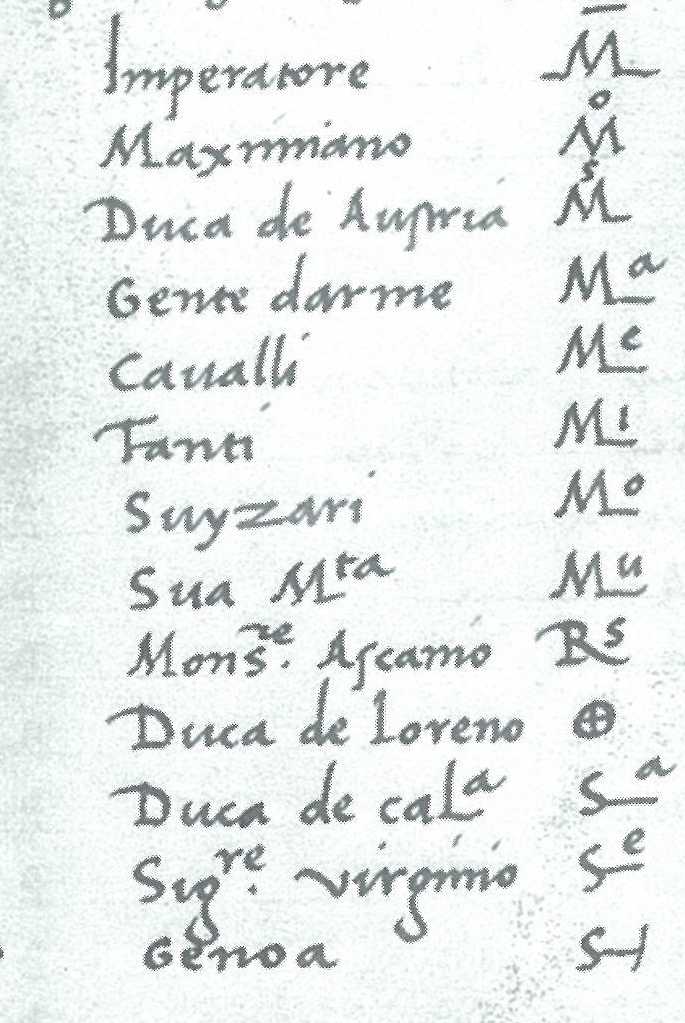 Imperatore M̄
Maximiano M°
Duca de Austria Mˢ
Gente darme Mᵃ
Caualli Mᵉ
Fanti Mⁱ
Suyzari Mᵒ
Sua Mᵗᵃ Mᵘ
Monsʳᵉ. Ascanio Rˢ
Duca de Loreno ⊕
Duca de calᵃ Sᵃ
Sigʳᵉ. virginio Sᵉ
Genoa